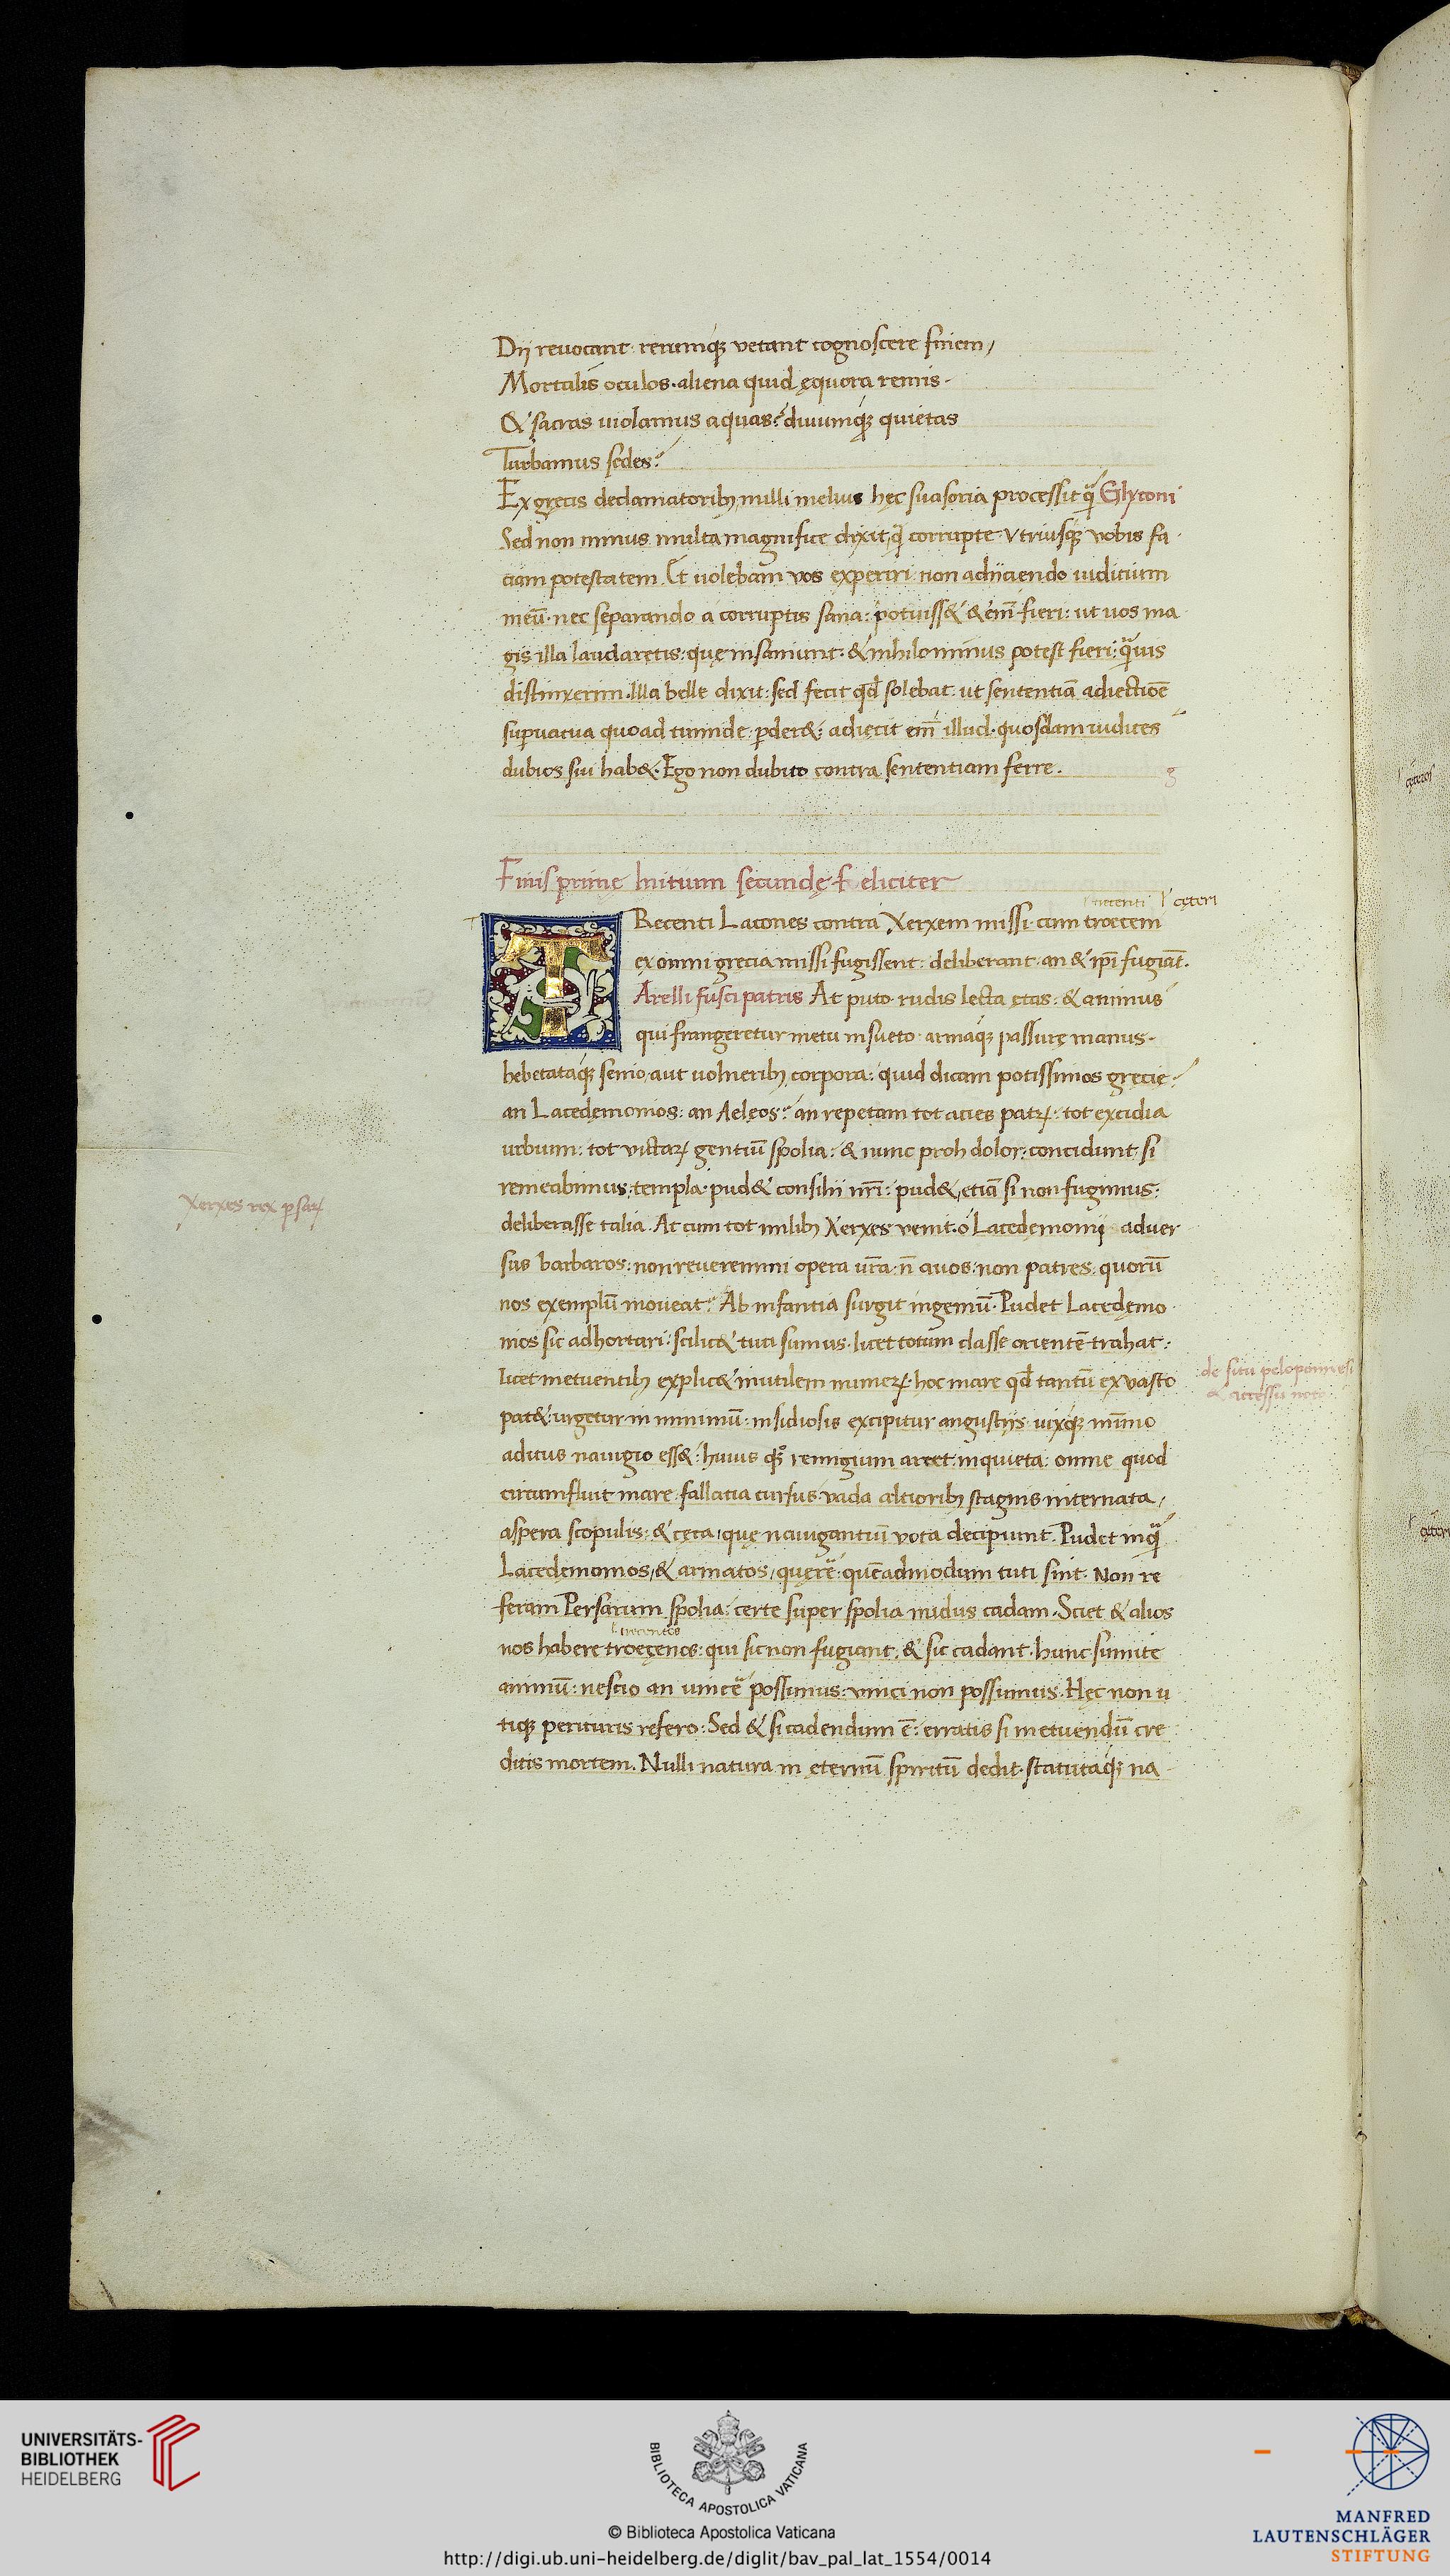 Dij reuocant rerumq; vetant cognoscere finem,
Mortalis oculos. aliena quid ęquora remis.
& sacras uiolamus aquas? diuumq; quietas
Turbamus sedes?
Ex gręcis declamatorib; nulli melius hęc suasoria processit q̃ Glyconi
Sed non minus multa magnifice dixit, q̃ corrupte. Vtriusq; vobis fa
ciam potestatem. Et uolebam vos experiri non adijciendo iuditium
meū. nec separando a corruptis sana: potuiss& & em̄ fieri: ut uos ma
gis illa laudaretis: quę insaniunt. & nihilominus potest fieri: q̃uis
distinxerim. Illa belle dixit: sed fecit qd̄ solebat. ut sententiā adiectiōe
supuacua quoad tumide pder&: adiecit em̄ illud. quosdam iudices
dubios sui hab&. Ego non dubito contra sententiam ferre.
Finis prime Initum secundę feliciter
tricenti ł cęteri
TRecenti Lacones contra Xerxem missi. cum troeceni
ex omni grecia missi fugissent: deliberant. an & ip̄i fugiāt.
Arelli fusci patris At puto rudis lecta ętas: & animus
qui frangeretur metu insueto armaq; passurę manus.
hebetataq; senio, aut uolneribȝ corpora: quid dicam potissimos gręcie?
an Lacedemonios: an Aeleos? an repetam tot acies patꝝ: tot excidia
urbium: tot uictaꝝ gentiū spolia: & nunc proh dolor: concidunt si
remeabimus: templa. pud& consilii nr̄i: pud&, etiā si non fugimus:
deliberasse talia. At cum tot milibȝ Xerxes venit. o Lacedemonij aduer
sus barbaros: non reueremini opera ur̄a. n̄ auos: non patres: quorū
nos exemplū moueat? Ab infantia surgit ingeniū. Pudet Lacedęmo
nios sic adhortari: scilic& tuti sumus. licet totum classe orientē trahat:
licet metuentibȝ explic& inutilem numeꝝ. hoc mare qd̄ tantū ex vasto
pat&: urgetur in minimū: insidiosis excipitur angustijs. uixq; minimo
aditus nauigio ess&: huius qȝ remigium arcet: inquieta: omne quod
circumfluit mare. fallacia cursus vada altioribȝ stagnis internata,
aspera scopulis: & cęta, quę nauigantiū vota decipiunt. Pudet inq̃
Lacedemonios, & armatos, querē: quēadmodum tuti sint. Non re
feram Persarum spolia: certe super spolia nudus cadam. Sciet & alios
trecentos
nos habere troecenos: qui sic non fugiant: & sic cadant. hunc sumite
animū: nescio an uincē possimus: vinci non possumus. Hęc non u
tiq; perituris refero: Sed & si cadendum ē: erratis si metuendū cre
ditis mortem. Nulli natura in ęternū spiritū dedit. statutaq; na
Xerxes rex psaꝝ
de situ peloponnesi
& accessu
UNIVERSITÄTS-
BIBLIOTHEK
HEIDELBERG
BIBLIOTECA APOSTOLICA VATICANA
© Biblioteca Apostolica Vaticana
http://digi.ub.uni-heidelberg.de/diglit/bav_pal_lat_1554/0014
MANFRED
LAUTENSCHLÄGER
STIFTUNG